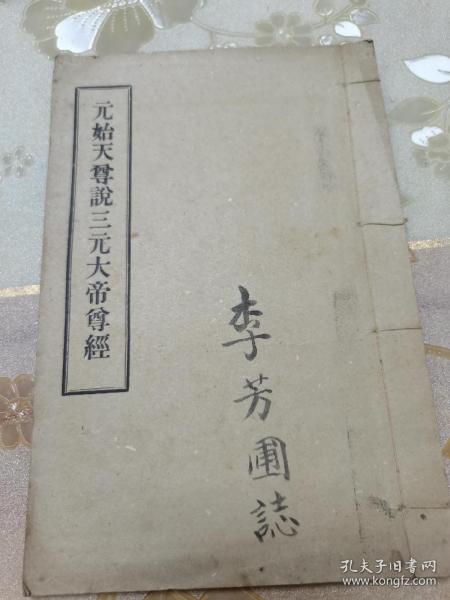 元始天尊說三元大帝尊經
李芳圃誌
孔夫子旧书网
www.kongfz.com